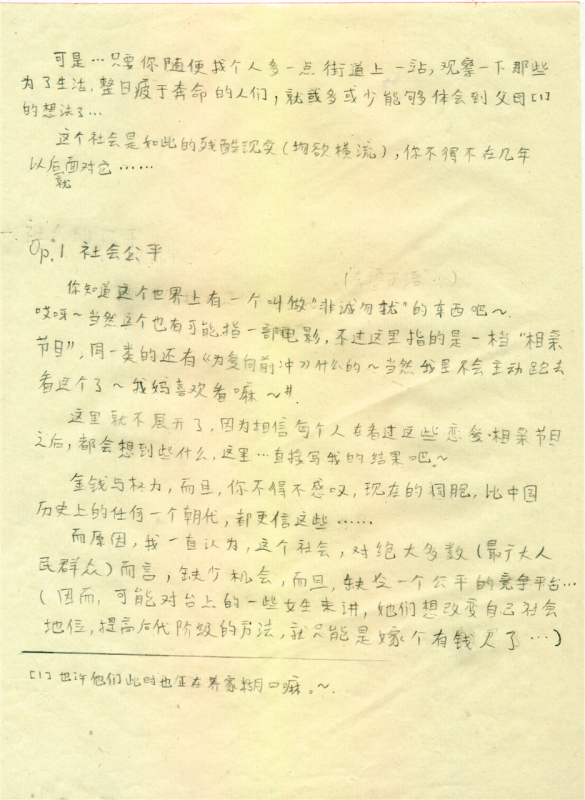 可是…只要你随便找个人多一点街道上一站,观察一下那些
为了生活,整日疲于奔命的人们,就或多或少能够体会到父母[1]
的想法了…
这个社会是如此的残酷现实(物欲横流),你不得不在几年
以后面对它……
就
Op.1 社会公平
你知道这个世界上有一个叫做“非诚勿扰”的东西吧~.
哎呀~当然这个也有可能指一部电影,不过这里指的是一档“相亲
节目”,同一类的还有《为爱向前冲》什么的~当然我是不会主动跑去
看这个了~我妈喜欢看嘛~#.
这里就不展开了,因为相信每个人在看过这些恋爱·相亲节目
之后,都会想到些什么,这里…直接写我的结果吧~
金钱与权力,而且,你不得不感叹,现在的同胞,比中国
历史上的任何一个朝代,都更信这些……
而原因,我一直认为,这个社会,对绝大多数(最广大人
民群众)而言,缺少机会,而且,缺少一个公平的竞争平台…
(因而,可能对台上的一些女生来讲,她们想改变自己社会
地位,提高后代阶级的方法,就只能是嫁个有钱人了…)
[1]也许他们此时也正在养家糊口嘛。~.